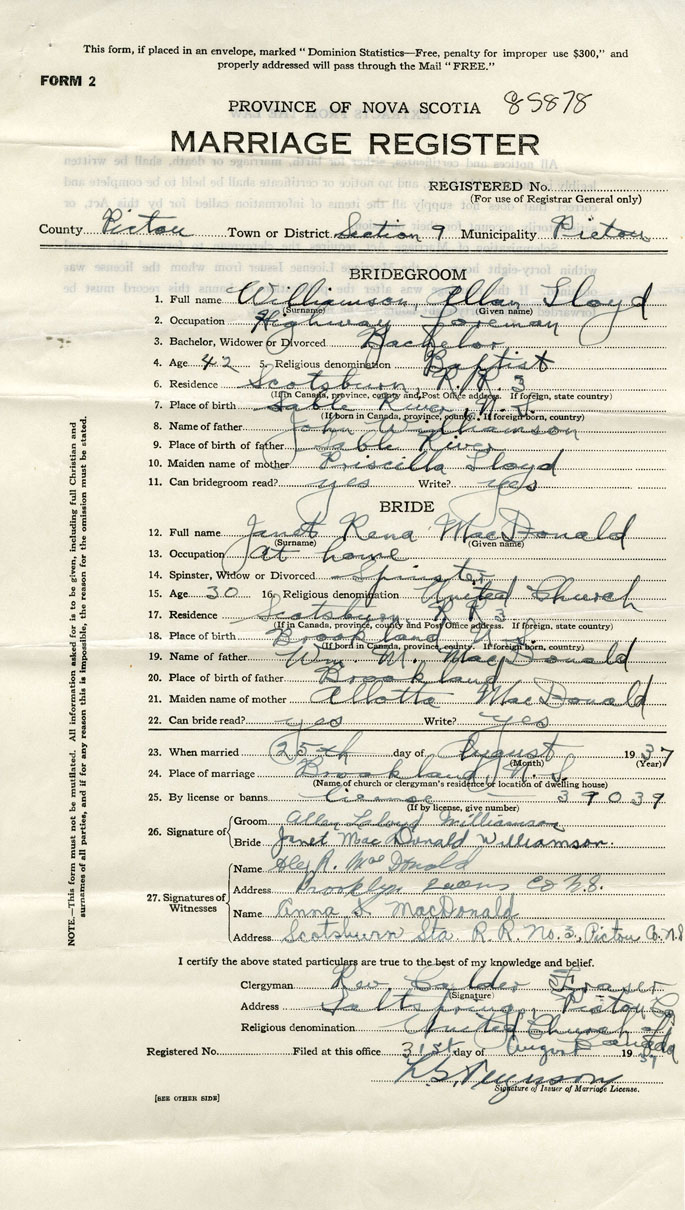 This form, if placed in an envelope, marked "Dominion Statistics—Free, penalty for improper use $300," and
properly addressed will pass through the Mail "FREE."
FORM 2
PROVINCE OF NOVA SCOTIA 85878
MARRIAGE REGISTER
REGISTERED No.
(For use of Registrar General only)
County Pictou Town or District Section 9 Municipality Pictou
BRIDEGROOM
1. Full name Williamson, Allan Lloyd
(Surname) (Given name)
2. Occupation Highway foreman
3. Bachelor, Widower or Divorced Bachelor
4. Age 42 5. Religious denomination Baptist
6. Residence Scotsburn, R.R. 3
(If in Canada, province, county and Post Office address. If foreign, state country)
7. Place of birth Sable River, N.S.
(If born in Canada, province, county. If foreign born, country)
8. Name of father John Williamson
9. Place of birth of father Sable River
10. Maiden name of mother Priscilla Lloyd
11. Can bridegroom read? yes Write? yes
BRIDE
12. Full name Janet Rena MacDonald
(Surname) (Given name)
13. Occupation At home
14. Spinster, Widow or Divorced Spinster
15. Age 30 16. Religious denomination United Church
17. Residence Scotsburn, R R 3
(If in Canada, province, county and Post Office address. If foreign, state country)
18. Place of birth Brookland N.S.
(If born in Canada, province, county. If foreign born, country)
19. Name of father Wm. M. MacDonald
20. Place of birth of father Brookland
21. Maiden name of mother Allotta MacDonald
22. Can bride read? yes Write? yes
23. When married 25th day of August 1937
(Month) (Year)
24. Place of marriage Brookland, N.S.
(Name of church or clergyman's residence or location of dwelling house)
25. By license or banns License 39039
(If by license, give number)
26. Signature of Groom Allan Lloyd Williamson
Bride Janet MacDonald Williamson.
27. Signatures of Witnesses
Name Alex R. MacDonald
Address Brooklyn Co N.S.
Name Anna MacDonald
Address Scotsburn Sta. R.R. No. 3, Pictou Co. N.S
I certify the above stated particulars are true to the best of my knowledge and belief.
Clergyman Rev. Calder Fraser
(Signature)
Address Saltsprings, Pictou Co
Religious denomination United Church of Canada
Registered No. Filed at this office 31st day of August 1937
Ferguson
Signature of Issuer of Marriage License.
[SEE OTHER SIDE]
NOTE.—This form must not be mutilated. All information asked for is to be given, including full Christian and
surnames of all parties, and if for any reason this is impossible, the reason for the omission must be stated.